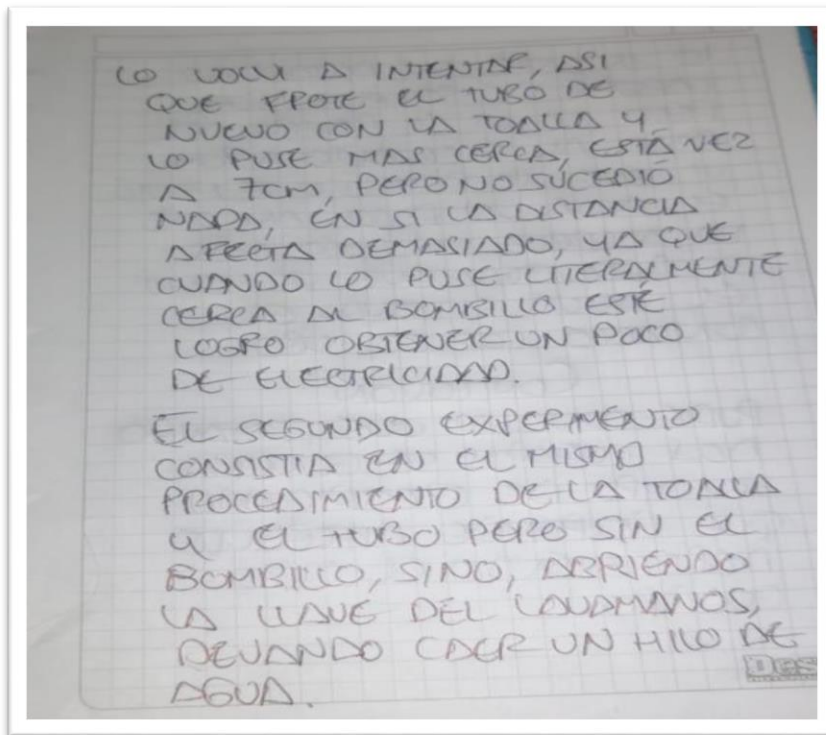 LO VOLVI A INTENTAR, ASI
QUE FROTE EL TUBO DE
NUEVO CON LA TOALLA Y
LO PUSE MAS CERCA, ESTA VEZ
A 7CM, PERO NO SUCEDIÓ
NADA, EN SI LA DISTANCIA
AFECTA DEMASIADO, YA QUE
CUANDO LO PUSE LITERALMENTE
CERCA AL BOMBILLO ESTE
LOGRO OBTENER UN POCO
DE ELECTRICIDAD.
EL SEGUNDO EXPERIMENTO
CONSISTIA EN EL MISMO
PROCEDIMIENTO DE LA TOALLA
Y EL TUBO PERO SIN EL
BOMBILLO, SINO, ABRIENDO
LA LLAVE DEL LAVAMANOS,
DEJANDO CAER UN HILO DE
AGUA.
Des